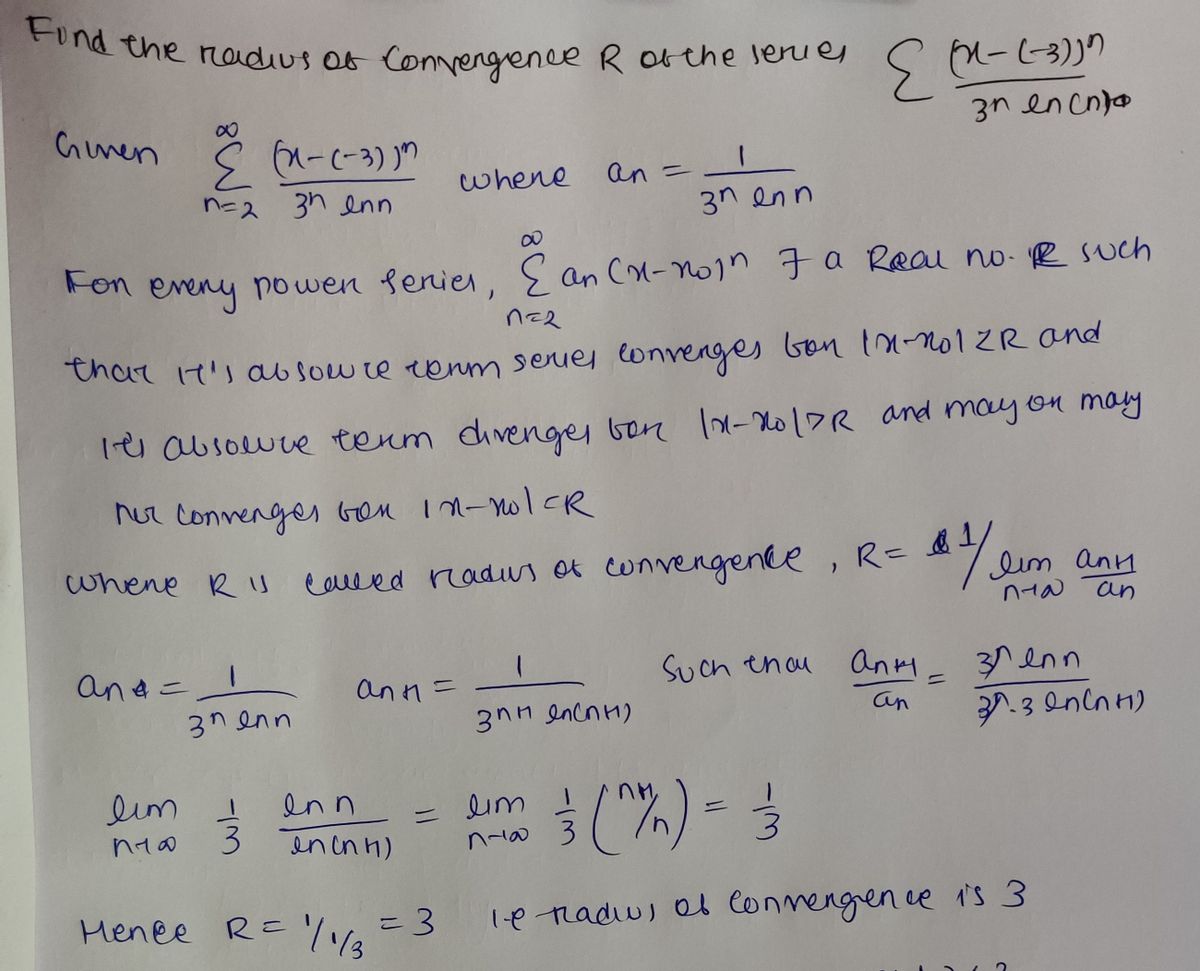 Find the radius of Convergence R of the series Σ (x-(-3))^n / 3^n ln(n)
Given ∞Σn=2 (x-(-3))^n / 3^n ln n where an = 1 / 3^n ln n
For every power series, ∞Σn=2 an (x-x0)^n ∃ a Real no. R such
that it's absolute term series converges for |x-x0| < R and
it's absolute term diverges for |x-x0| > R and may or may
not converges for |x-x0| = R
where R is called radius of convergence, R = 1 / lim n→∞ an+1 / an
an = 1 / 3^n ln n an+1 = 1 / 3^n+1 ln(n+1) Such that an+1 / an = 3^n ln n / 3^n.3 ln(n+1)
lim n→∞ 1/3 ln n / ln(n+1) = lim n→∞ 1/3 (n+1/n) = 1/3
Hence R = 1/1/3 = 3 i.e radius of convergence is 3